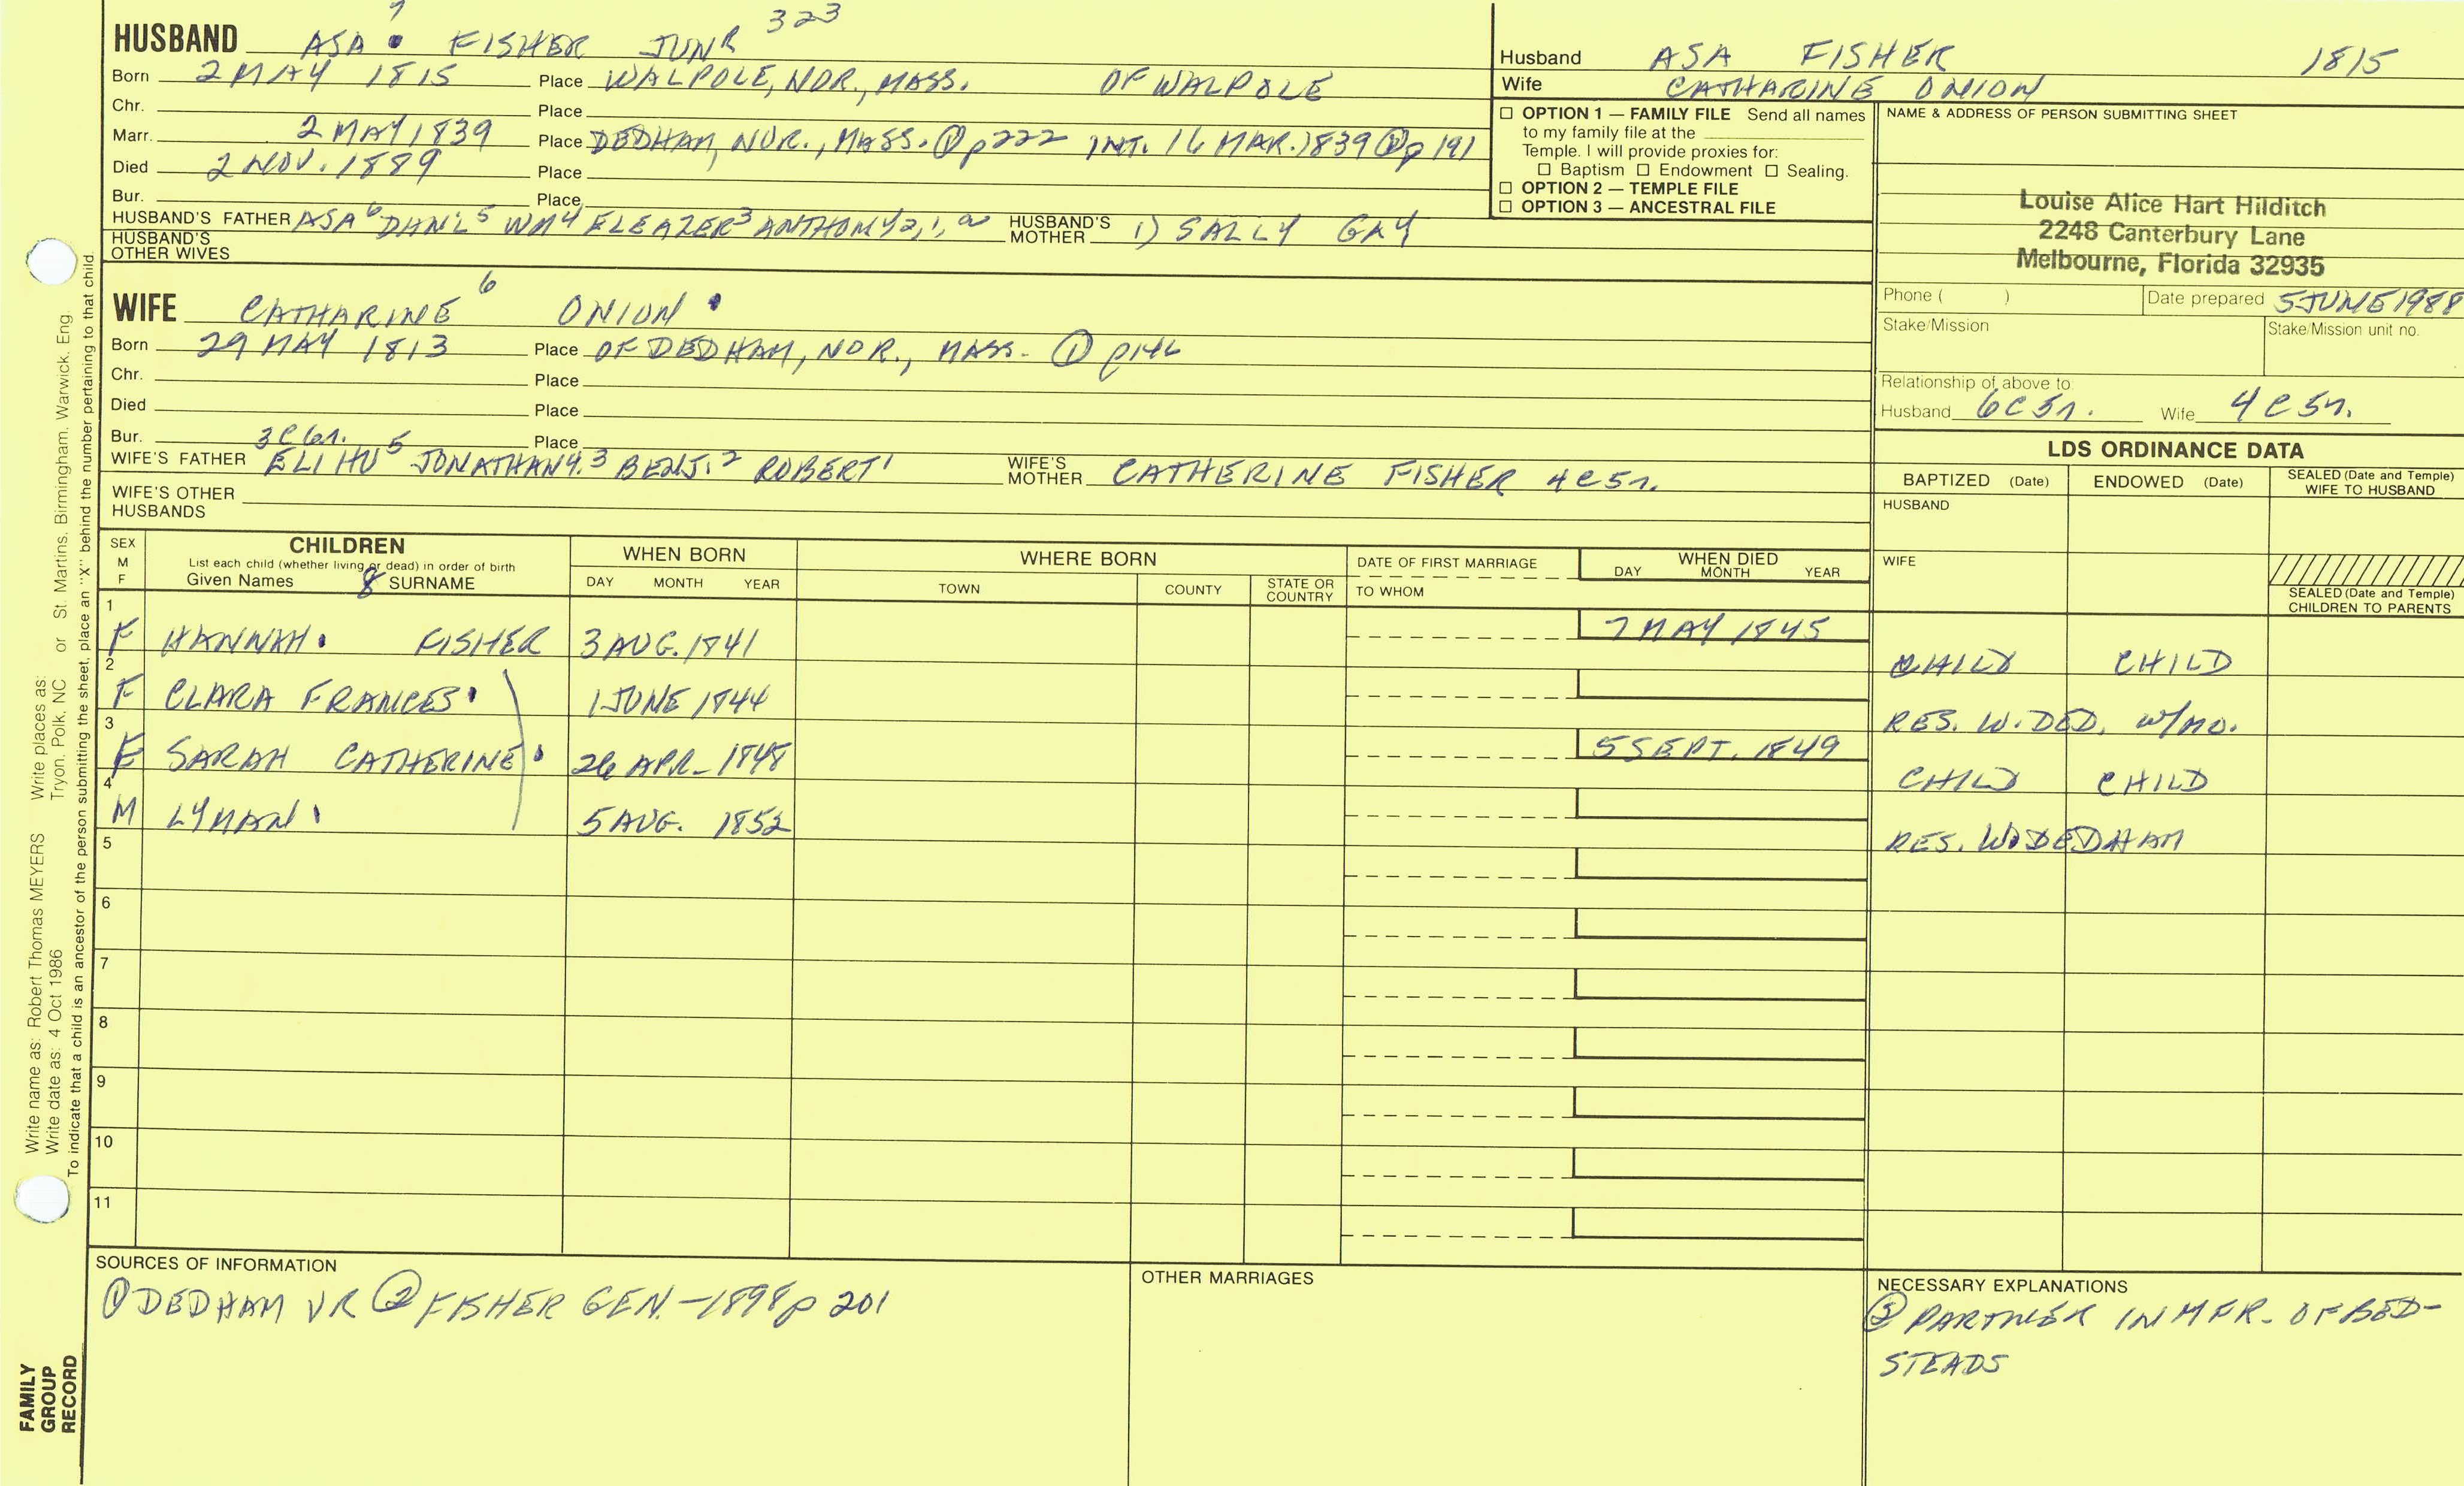 7 323
HUSBAND ASA • FISHER JUNR
Born 2 MAY 1815 Place WALPOLE, NOR., MASS. OF WALPOLE
Chr. Place
Marr. 2 MAY 1839 Place DEDHAM, NOR., MASS. ① p222 INT. 16 MAR. 1839 ① p191
Died 2 NOV. 1889 Place
Bur. Place
HUSBAND'S FATHER ASA6 DANL5 WM4 ELEAZER3 ANTHONY2,1,a HUSBAND'S MOTHER 1) SALLY GAY
HUSBAND'S OTHER WIVES
Husband ASA FISHER 1815
Wife CATHARINE ONION
☐ OPTION 1 — FAMILY FILE Send all names
to my family file at the
Temple. I will provide proxies for:
☐ Baptism ☐ Endowment ☐ Sealing.
☐ OPTION 2 — TEMPLE FILE
☐ OPTION 3 — ANCESTRAL FILE
NAME & ADDRESS OF PERSON SUBMITTING SHEET
Louise Alice Hart Hilditch
2248 Canterbury Lane
Melbourne, Florida 32935
Phone ( ) Date prepared 5 JUNE 1988
Stake/Mission Stake/Mission unit no.
Relationship of above to:
Husband 6C5r. Wife 4C5r.
6
WIFE CATHARINE ONION •
Born 29 MAY 1813 Place OF DEDHAM, NOR., MASS. ① p146
Chr. Place
Died Place
Bur. Place
3C6r.
WIFE'S FATHER ELIHU5 JONATHAN4,3 BENJ.2 ROBERT1 WIFE'S MOTHER CATHERINE FISHER 4C5r.
WIFE'S OTHER HUSBANDS
LDS ORDINANCE DATA
BAPTIZED (Date) ENDOWED (Date) SEALED (Date and Temple) WIFE TO HUSBAND
HUSBAND
WIFE
SEALED (Date and Temple) CHILDREN TO PARENTS
SEX M F
CHILDREN
List each child (whether living or dead) in order of birth
Given Names 8 SURNAME
WHEN BORN
DAY MONTH YEAR
WHERE BORN
TOWN COUNTY STATE OR COUNTRY
DATE OF FIRST MARRIAGE
TO WHOM
WHEN DIED
DAY MONTH YEAR
1 F HANNAH • FISHER 3 AUG. 1841 7 MAY 1845 CHILD CHILD
2 F CLARA FRANCES • 1 JUNE 1844 RES. W. DED. w/MO.
3 F SARAH CATHERINE • 26 APR. 1848 5 SEPT. 1849 CHILD CHILD
4 M LYMAN • 5 AUG. 1852 RES. W. DEDHAM
5
6
7
8
9
10
11
SOURCES OF INFORMATION
① DEDHAM VR ② FISHER GEN. -1898 p 201
OTHER MARRIAGES
NECESSARY EXPLANATIONS
② PARTNER IN MFR. OF BED-
STEADS
Write name as: Robert Thomas MEYERS Write places as: Tryon, Polk, NC or St. Martins, Birmingham, Warwick, Eng.
Write date as: 4 Oct 1986
To indicate that a child is an ancestor of the person submitting the sheet, place an "X" behind the number pertaining to that child.
FAMILY
GROUP
RECORD